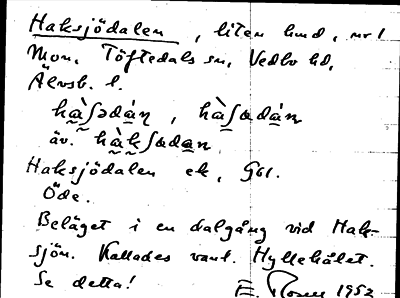 Haksjödalen, liten lund, nr 1
Mon. Töftedals sn, Vedbo hd,
Älvsb. l.
hàʃədán, hàʃədán
äv. hàkʃədan
Haksjödalen ek, Gsl.
Öde.
Beläget i en dalgång vid Hak-
sjön. Kallades vanl. Hyllehålet.
Se detta! E. Rosen 1952